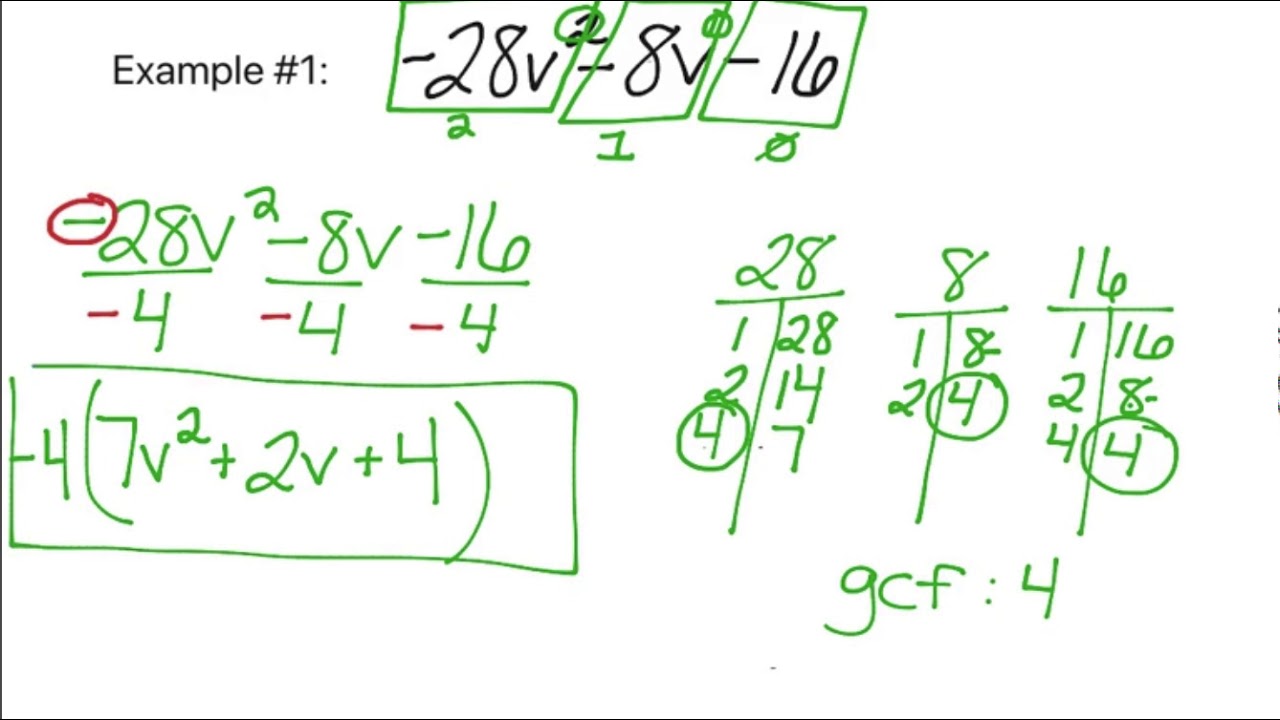 Example #1: -28v²-8v-16
2 1 0
-28v² -8v -16
-4 -4 -4
-4(7v²+2v+4)
28
1 28
2 14
4 7
8
1 8
2 4
16
1 16
2 8
4 4
gcf: 4